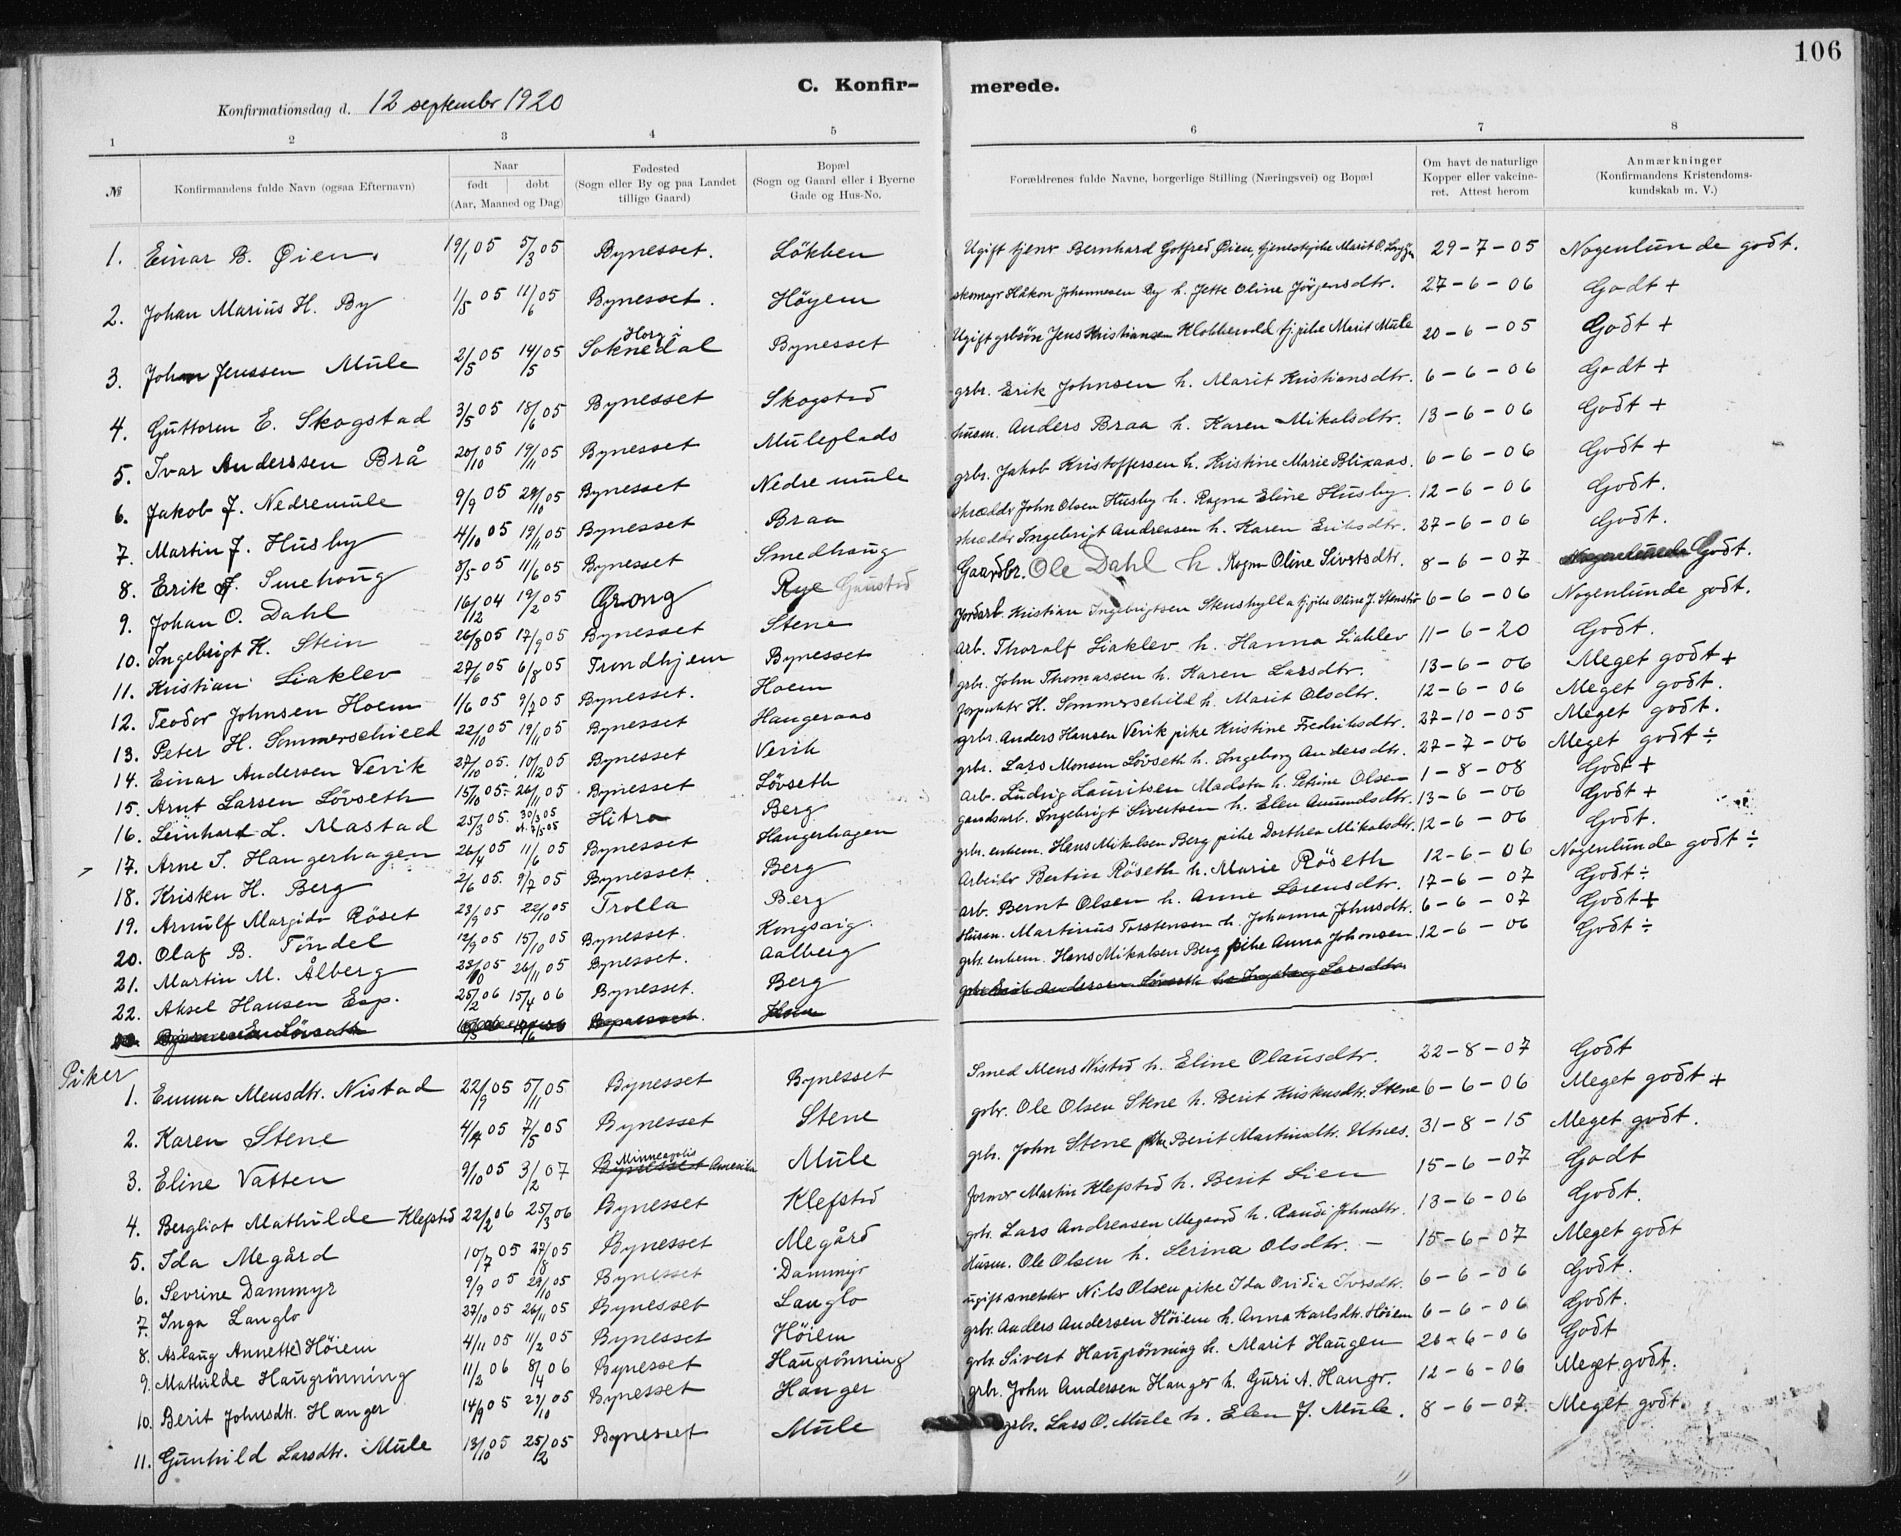 106
C. Konfir- merede.
Konfirmationsdag d. 12 september 1920
1 2 3 4 5 6 7 8
№ Konfirmandens fulde Navn (ogsaa Efternavn) Naar født døbt (Aar, Maaned og Dag) Fødested (Sogn eller By og paa Landet tillige Gaard) Bopæl (Sogn og Gaard eller i Byerne Gade og Hus-No. Forældrenes fulde Navne, borgerlige Stilling (Næringsvei) og Bopæl Om havt de naturlige Kopper eller vakcine- ret. Attest herom Anmærkninger (Konfirmandens Kristendoms- kundskab m. V.)
1. Einar B. Øien. 19/1 05 5/3 05 Bynesset. Lökken Ugift tjener Bernhard Gotfred Øien, tjenestepike Marit O. 29-7-05 Nogenlunde godt.
2. Johan Marius H. By 1/5 05 11/6 05 Bynesset. Höyem skomgr Håkon Johannesen By h. Jette Oline Jörgensdtr. 27-6-06 Godt +
3. Johan Jenssen Mule 2/5 05 14/5 05 Horg i Soknedal Bynesset Ugift grbsön Jens Kristiansen Klobbervold tj. pike Marit Mule 20-6-05 Godt +
4. Guttorm E. Skogstad 3/5 05 18/6 05 Bynesset Skogstad grbr. Erik Johnsen h. Marit Kristiansdtr. 6-6-06 Godt +
5. Ivar Anderssen Brå 20/10 05 19/11 05 Bynesset Muleplads husm. Anders Braa h. Karen Mikalsdtr. 13-6-06 Godt +
6. Jakob J. Nedremule 9/9 05 29/10 05 Bynesset Nedre mule grbr. Jakob Kristoffersen h. Kristine Marie Blixaas. 6-6-06 Godt +
7. Martin J. Husby 4/10 05 19/11 05 Bynesset Braa skrædder John Olsen Husby h. Ragna Eline Husby. 12-6-06 Godt.
8. Erik J. Smehoug 8/5 05 11/6 05 Bynesset Smedhaug skrædder Ingebrigt Andreasen h. Karen Eriksdtr. 27-6-06 Godt.
9. Johan O. Dahl 16/12 04 19/2 05 Grong Rye Gaustad Gaardbr. Ole Dahl h. Ragna Oline Sivertsdtr. 8-6-07 Godt.
10. Ingebrigt H. Stein 26/8 05 17/9 05 Bynesset Stene Jordarb. Kristian Ingebrigtsen Stenshylla tj. pike Oline J. 6-6-06 Nogenlunde godt.
11. Kristian Liaklev 27/6 05 6/8 05 Trondhjem Bynesset Arb. Thoralf Liaklev h. Hanna Liaklev 11-6-20 Godt.
12. Teodor Johnsen Hoem 1/6 05 9/7 05 Bynesset. Hoem grbr. John Thomassen h. Karen Larsdtr. 13-6-06 Meget godt +
13. Peter H. Sommerschield 22/10 05 19/11 05 Bynesset Hangeraas H. Sommerschild h. Marit Olsdtr. 12-6-06 Meget godt.
14. Einar Andersen Verik 27/10 05. 10/2 05 Bynesset Verik grbr. Anders Hansen Verik pike Kristine Fredriksdtr. 27-10-05 Meget godt.
15. Arnt Larsen Lövseth 15/10 05. 26/11 05 Bynesset Lövseth grbr. Lars Monsen Lövseth h. Ingeborg Andersdtr. 27-7-06 Meget godt ÷
16. Leinhard L. Mastad 25/3 05. 30/3 05 Hitra Berg Arb. Ludvig Lauritsen Madstu h. Petrine Olsen 1-8-08 Godt +
17. Arne I. Hangerhagen 26/4 05 11/6 05 Bynesset Hangerhagen gaardsarb. Ingebrigt Sivertsen h. Elen Amundsdtr. 13-6-06 Godt +
18. Kristen H. Berg 2/6 05. 9/7 05 Bynesset. Berg grbr. enkem. Hans Mikelsen Berg pike Dorthea Mikalsdtr. 12-6-06 Godt.
19. Arnulf Margido Röset 23/9 05 22/10 05 Trolla Berg Arbeider Bertin Röseth h. Marie Röseth 12-6-06 Nogenlunde godt ÷
20. Olaf B. Töndel 12/9 05 15/10 05 Bynesset. Kongsvig. arb. Bernt Olsen h. Anne Lorensdtr. 17-6-07 Godt ÷
21. Martin M. Ålberg 22/10 05 26/11 05 Bynesset. Aalberg Husm. Martinus Torstensen h. Johanna Johnsdtr. 6-6-07 Godt +
22. Aksel Hansen Esp. 25/2 06 15/4 06 Bynesset. Berg grbr. enkem. Hans Mikalsen Berg pike Anna Johansen 12-6-06 Godt ÷
Lövseth Bynesset. grbr. Erik Andersen Lövseth h. Ingeborg Larsdtr.
Piker
1. Emma Mensdtr. Nistad 22/9 05 5/11 05 Bynesset Bynesset Smed Mens Nistad h. Eline Olausdtr. 22-8-07 Godt
2. Karen Stene 4/4 05 7/5 05 Bynesset Stene grbr. Ole Olsen Stene h. Berit Stene 6-6-06 Meget godt +
3. Eline Vatten 9/10 05 3/2 07 Bynesset Minneapolis Amerika Mule grbr. John Stene pike Berit Martinsdtr. Utnes. 31-8-15 Meget godt.
4. Bergliot Mathilde Klefstad 22/2 06 25/3 06 Bynesset Klefstad former Martin Klefstad h. Berit Lien 15-6-07 Godt
5. Ida Megård 10/7 05 27/8 05 Bynesset Megård grbr. Lars Andreasen Megaard h. Randi Johnsdtr. 13-6-06 Godt.
6. Sevrine Dammyr 9/9 05 29/10 05 Bynesset Dammyr Husm. Ole Olsen h. Serina Olsdtr. — 15-6-07 Meget godt
7. Inga Langlo 27/10 05 26/11 05 Bynesset Langlo ugift snekker Nils Olsen pike Ida Ovidia Iversdtr. 6-6-06 Godt.
8. Aslaug Annette Höiem 4/11 05 11/2 05 Bynesset Höiem grbr. Anders Andersen Höiem h. Anna Karlsdtr. Höiem 6-6-06 Godt.
9. Mathilde Haugrönning 11/2 06 8/4 06 Bynesset Haugrönning grbr. Sivert Haugrönning h. Marit Haugen 26-6-06 Godt
10. Berit Johnsdtr. Hanger 14/9 05 29/10 05 Bynesset Hanger grbr. John Andersen Hanger h. Guri A. Hangr. 12-6-06 Meget godt.
11. Gunhild Larsdtr. Mule 13/10 05 25/2 05 Bynesset Mule grbr. Lars O. Mule h. Elen J. Mule. 8-6-07. Meget godt.